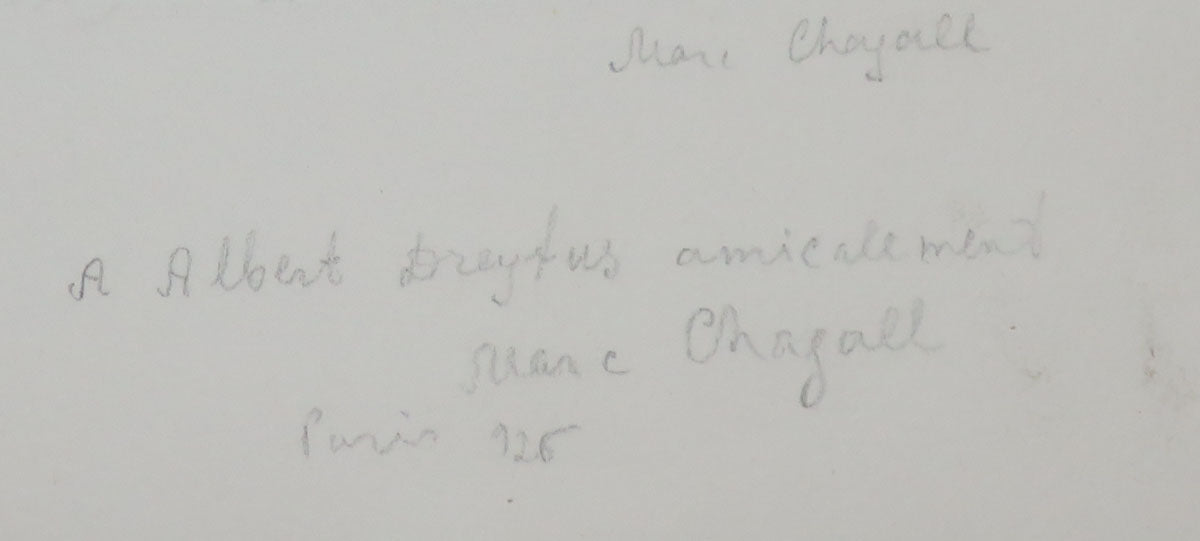 Marc Chagall
A Albert Dreyfus amicalement
Marc Chagall
Paris 925